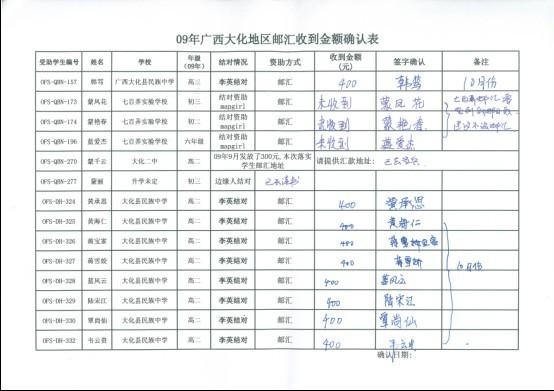 09年广西大化地区邮汇收到金额确认表
受助学生编号 姓名 学校 年级(09年) 结对情况 资助方式 收到金额(元) 签字确认 备注
OFS-QBN-157 韩笃 广西大化县民族中学 高三 李英结对 邮汇 400 韩笃 10月份
OFS-QBN-173 蒙凤花 七百弄实验学校 初三 结对资助mapgirl 邮汇 未收到 蒙凤花
OFS-QBN-174 蒙艳春 七百弄实验学校 初二 结对资助mapgirl 邮汇 未收到 蒙艳春
OFS-QBN-196 蓝爱杰 七百弄实验学校 六年级 结对资助mapgirl 邮汇 未收到 蓝爱杰
OFS-QBN-270 蒙千云 大化二中 高二 09年9月发放了300元,本次落实学生邮汇地址 请提供汇款地址:
OFS-QBN-277 蒙丽 升学未定 初三 边缘人结对
OFS-DH-324 黄承恩 大化县民族中学 高二 李英结对 邮汇 400 黄承恩
OFS-DH-325 黄海仁 大化县民族中学 高二 李英结对 邮汇 400 黄海仁
OFS-DH-326 蒋宝家 大化县民族中学 高二 李英结对 邮汇 400
OFS-DH-327 蒋雪姣 大化县民族中学 高二 李英结对 邮汇 400 10月份
OFS-DH-328 蓝风云 大化县民族中学 高二 李英结对 邮汇 400 蓝风云
OFS-DH-329 陆宋江 大化县民族中学 高二 李英结对 邮汇 400 陆宋江
OFS-DH-330 覃尚仙 大化县民族中学 高二 李英结对 邮汇 400 覃尚仙
OFS-DH-332 韦云贵 大化县民族中学 高二 李英结对 邮汇 400
确认日期: